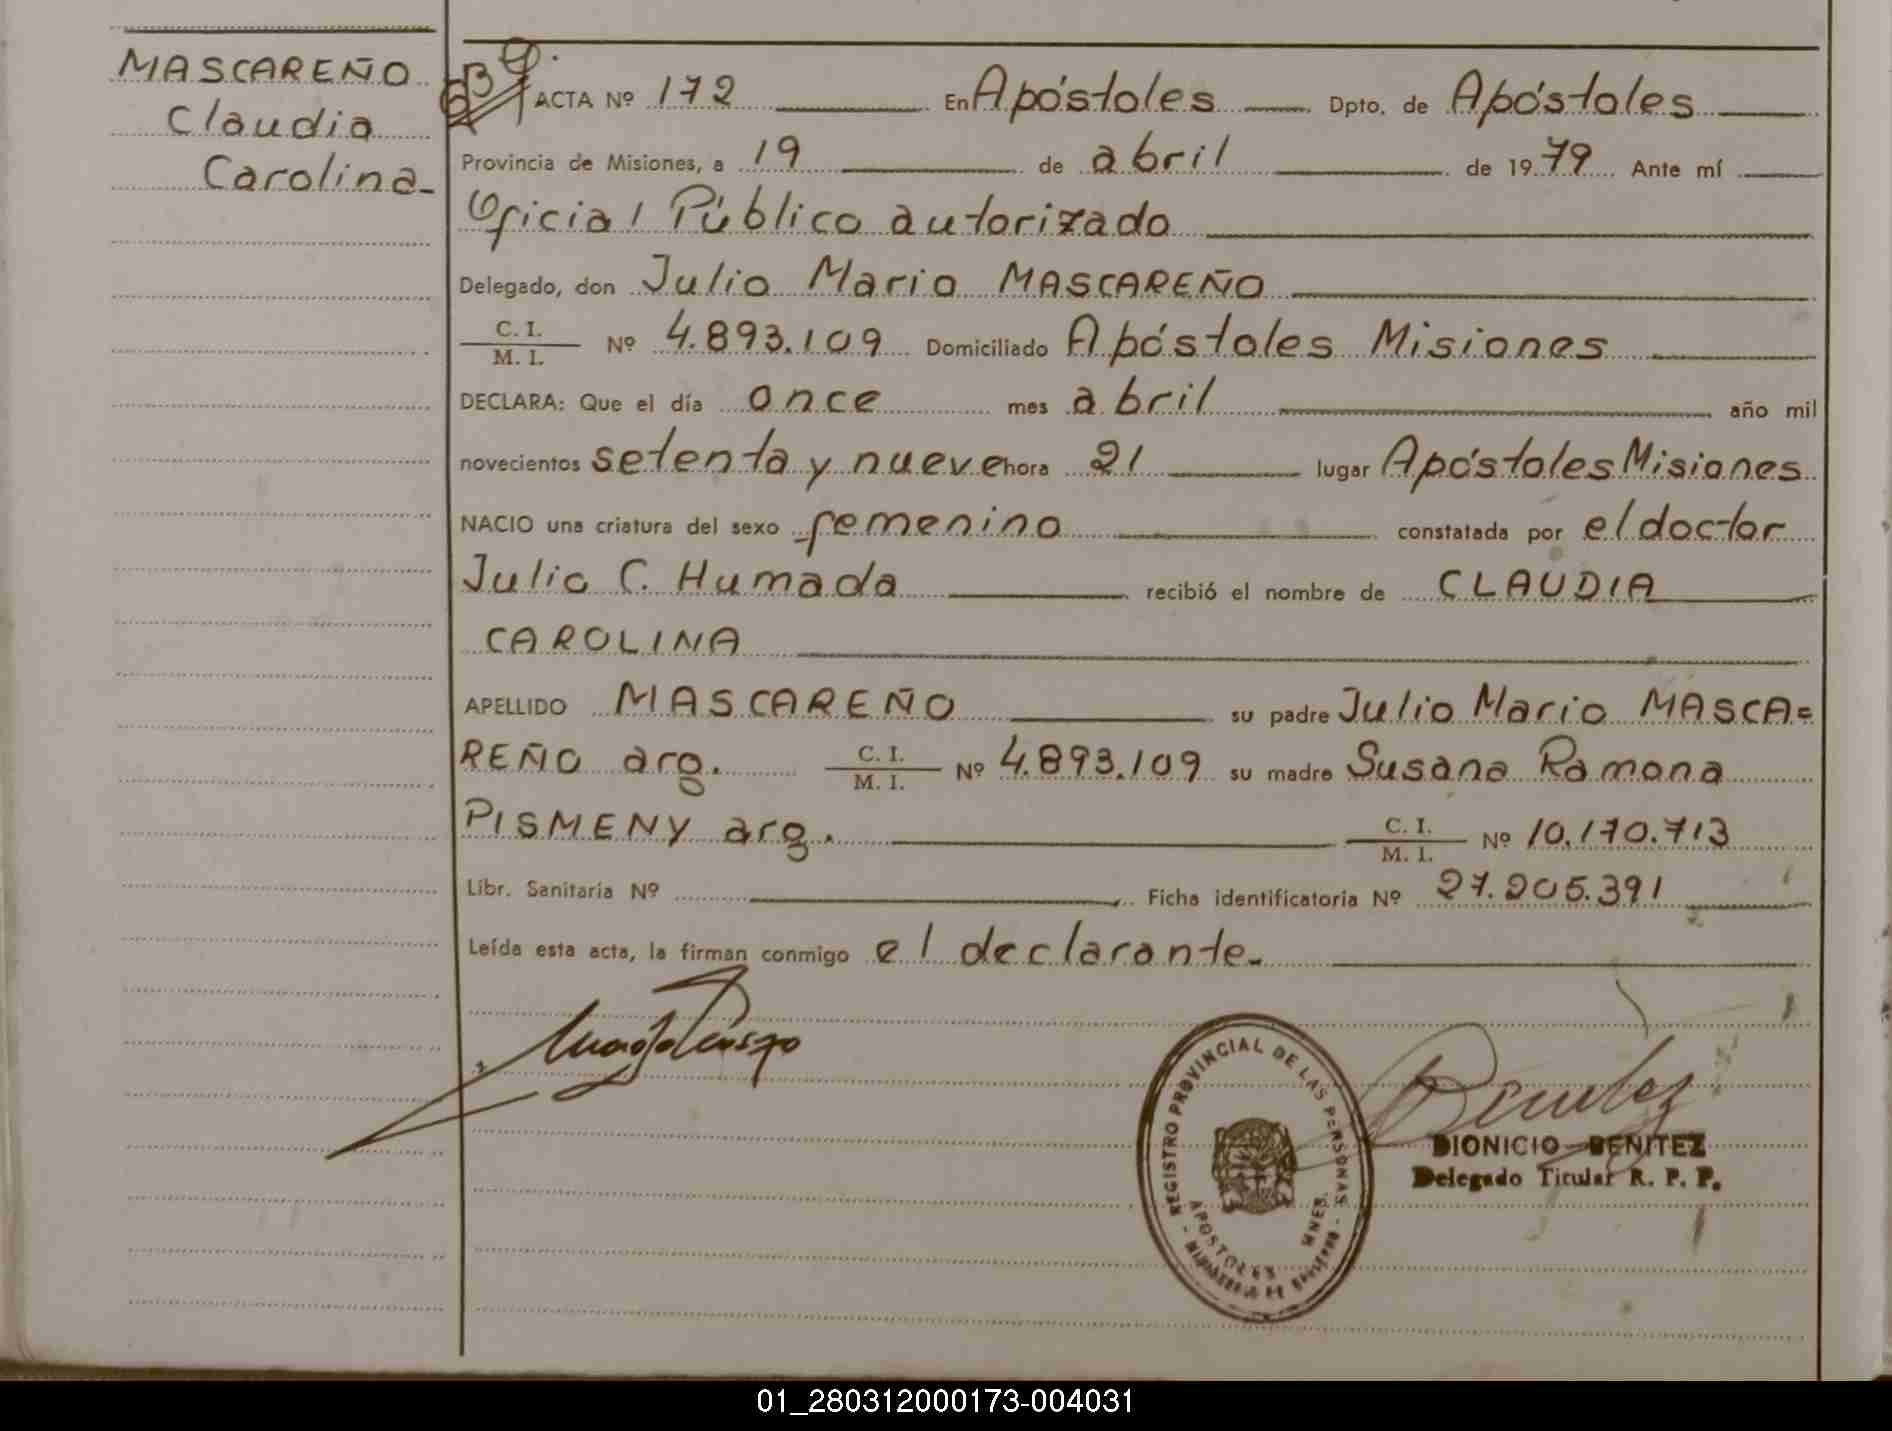 MASCAREÑO
Claudia
Carolina-
ACTA Nº 172 En Apóstoles Dpto. de Apóstoles
Provincia de Misiones, a 19 de abril de 1979 Ante mí
Oficial Público autorizado
Delegado, don Julio Mario MASCAREÑO
C. I.
M. I. Nº 4.893.109 Domiciliado Apóstoles Misiones
DECLARA: Que el día once mes abril año mil
novecientos setenta y nueve hora 21 lugar Apóstoles Misiones
NACIO una criatura del sexo femenino constatada por el doctor
Julio C. Humada recibió el nombre de CLAUDIA
CAROLINA
APELLIDO MASCAREÑO su padre Julio Mario MASCA=
REÑO arg. C. I. M. I. Nº 4.893.109 su madre Susana Ramona
PISMENY arg. C. I. M. I. Nº 10.170.713
Libr. Sanitaria Nº Ficha identificatoria Nº 27.205.391
Leída esta acta, la firman conmigo el declarante.-
REGISTRO PROVINCIAL DE LAS PERSONAS
APOSTOLES MNES.
Benitez
DIONICIO BENITEZ
Delegado Titular R. P. P.
01_280312000173-004031